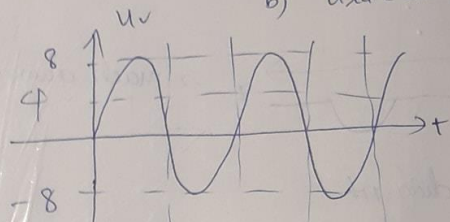 b)
Uv
8
4
t
-8